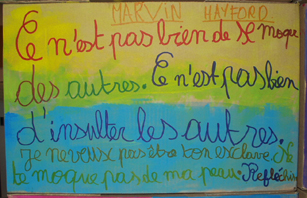 MARVIN HAYFORD
Ce n'est pas bien de se moque
des autres. Ce n'est pas bien
d'insulter les autres.
Je ne veux pas être ton esclave. Ne
te moque pas de ma peau. Refléchis